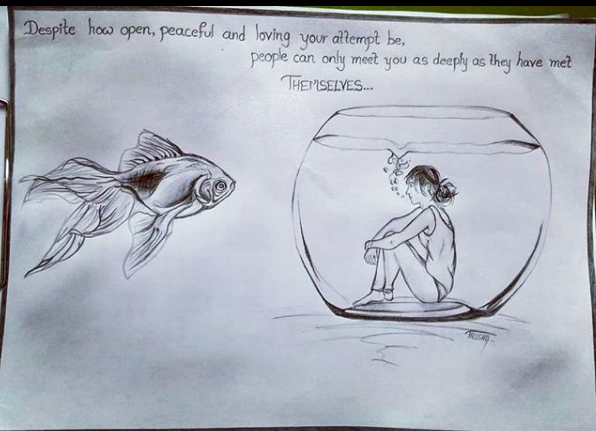 Despite how open, peaceful and loving your attempt be,
people can only meet you as deeply as they have met
THEMSELVES...
TRUSHA